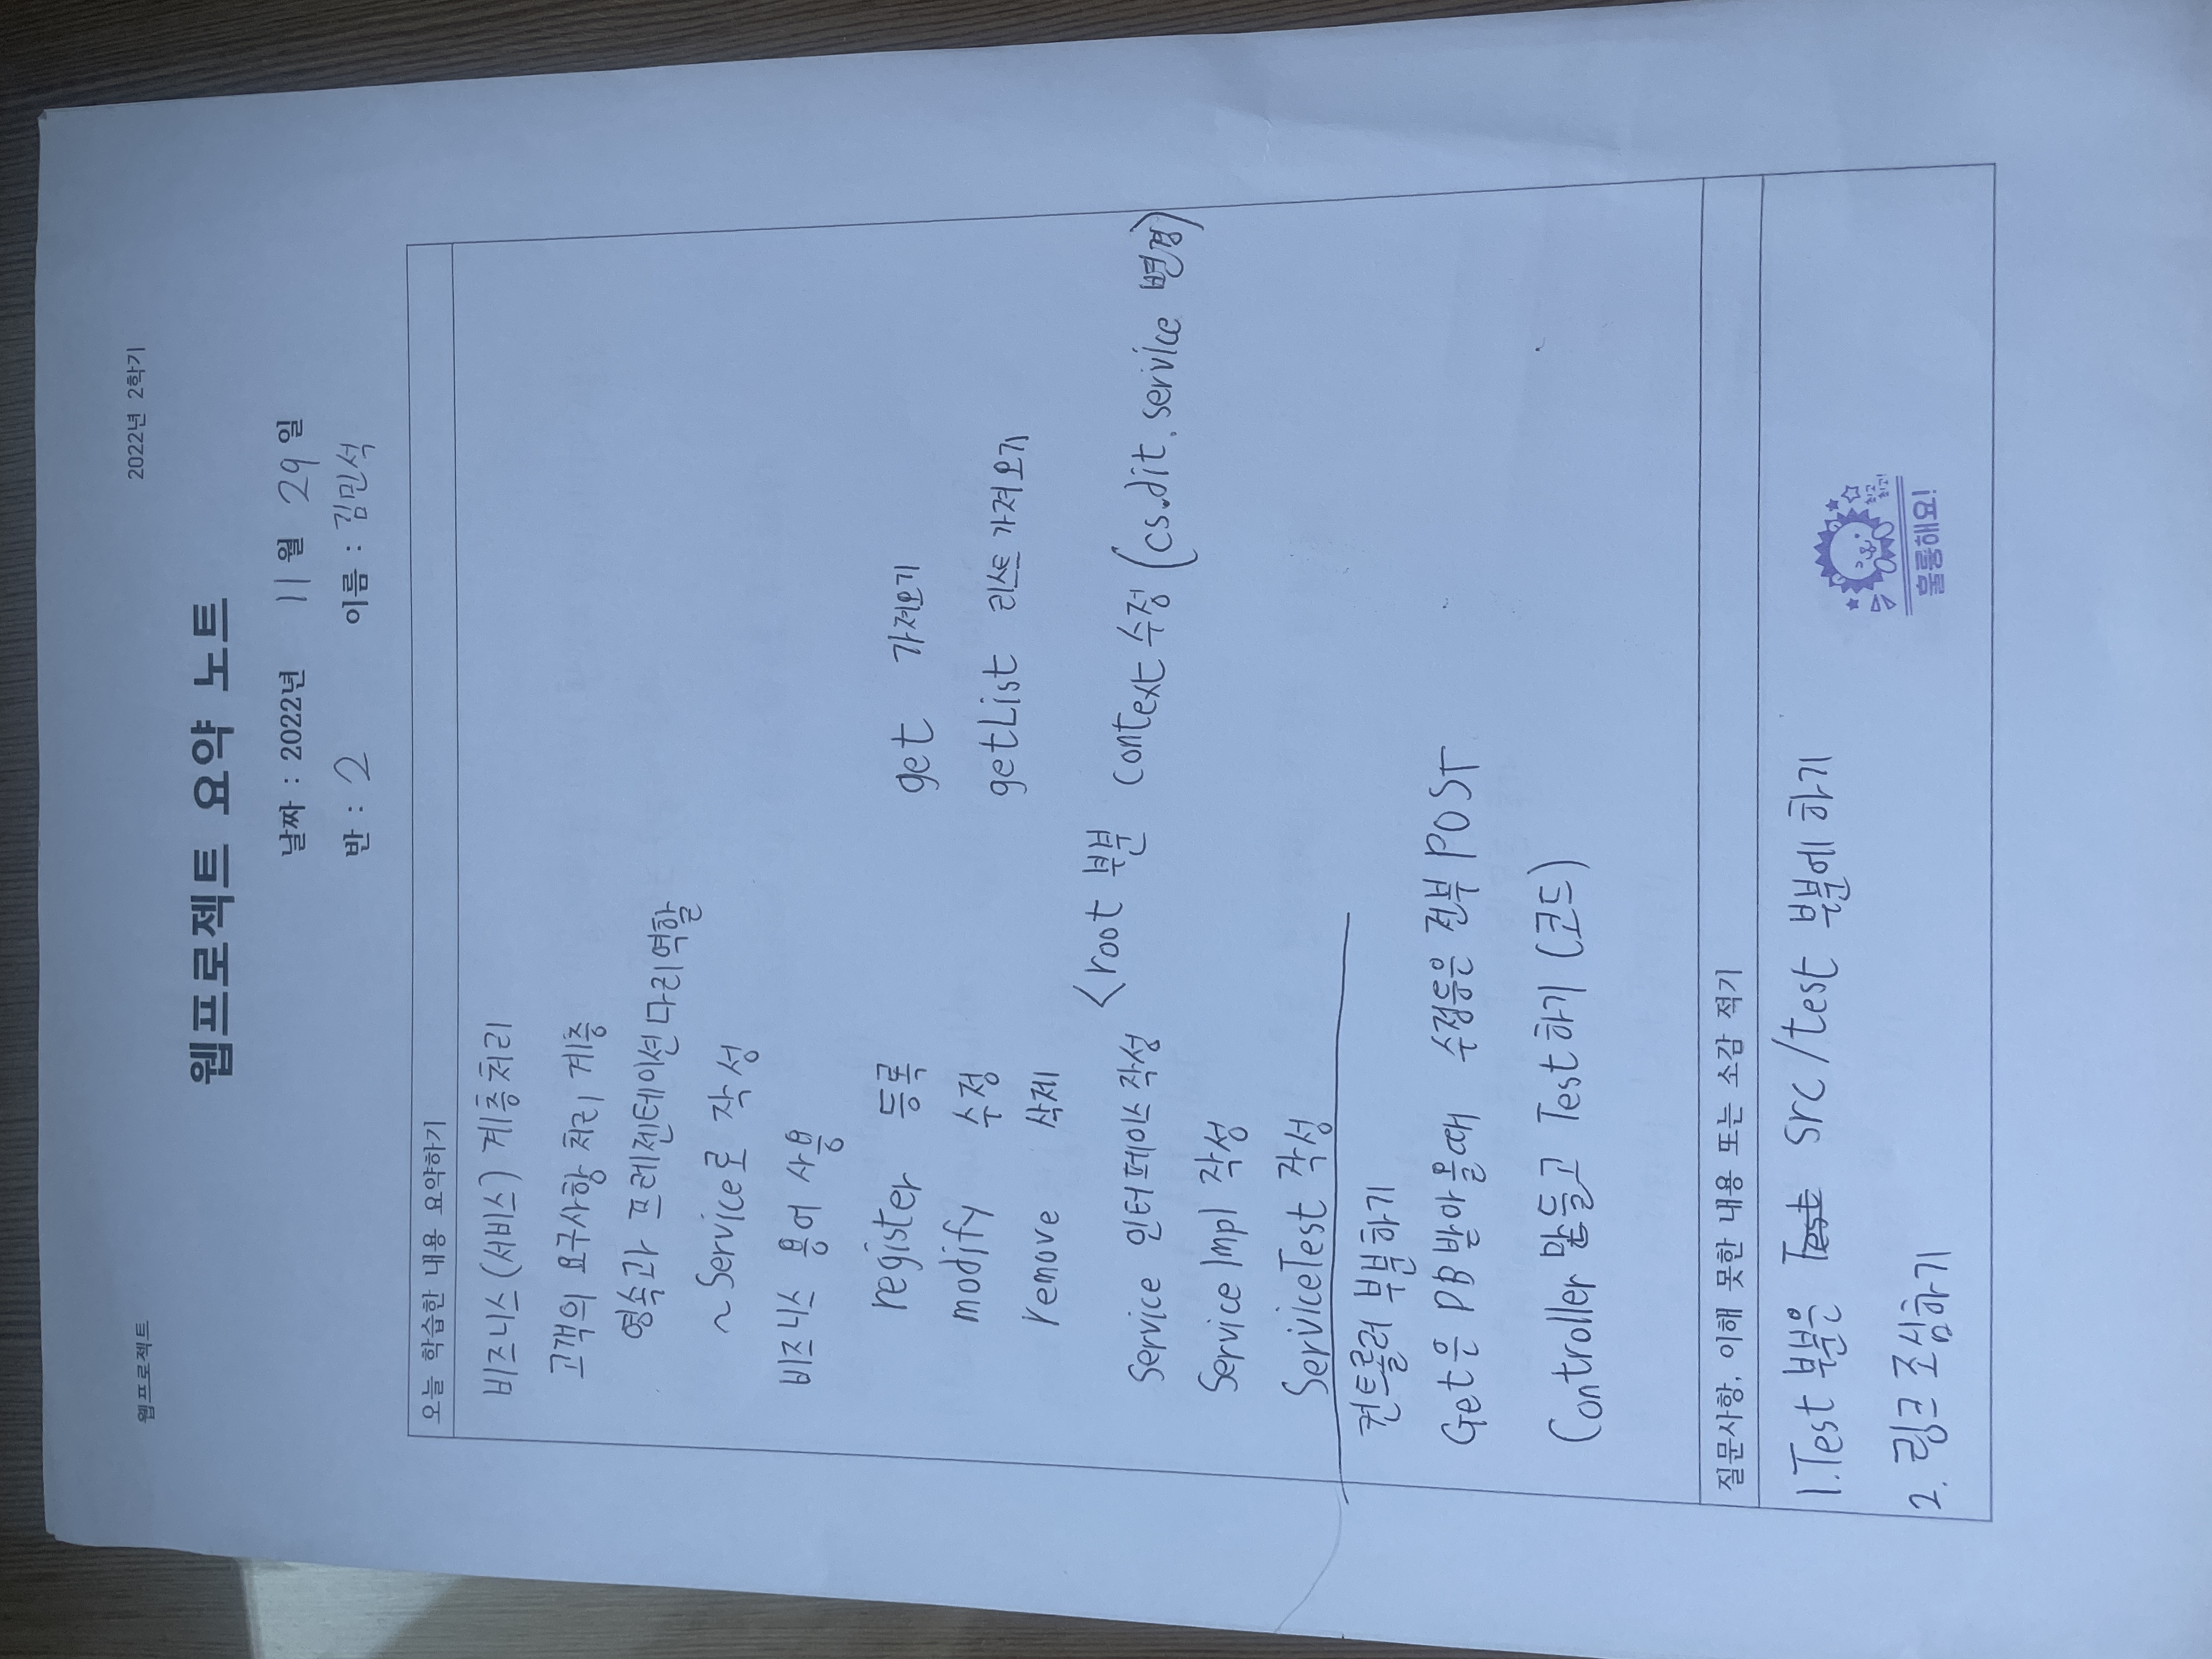 웹프로젝트
2022년 2학기
웹프로젝트 요약 노트
날짜 : 2022년 11월 29일
반 : 2 이름 : 김민석
오늘 학습한 내용 요약하기
비즈니스(서비스) 계층처리
고객의 요구사항 처리 계층
영속과 프레젠테이션 다리역할
~Service로 작성
비즈니스 용어 사용
register 등록 get 가져오기
modify 수정 getList 리스트 가져오기
remove 삭제
Service 인터페이스작성 <root 부분 context 수정 (cs.dit.service 변경)
Service Impl 작성
ServiceTest 작성
컨트롤러 부분하기
Get은 DB받아올때 수정등은 전부 POST
Controller 만들고 Test하기 (코드)
질문사항, 이해 못한 내용 또는 소감 적기
1.Test 부분은 Test src/test 부분에 하기
2. 링크 조심하기
최고
최고!
훌륭해요!